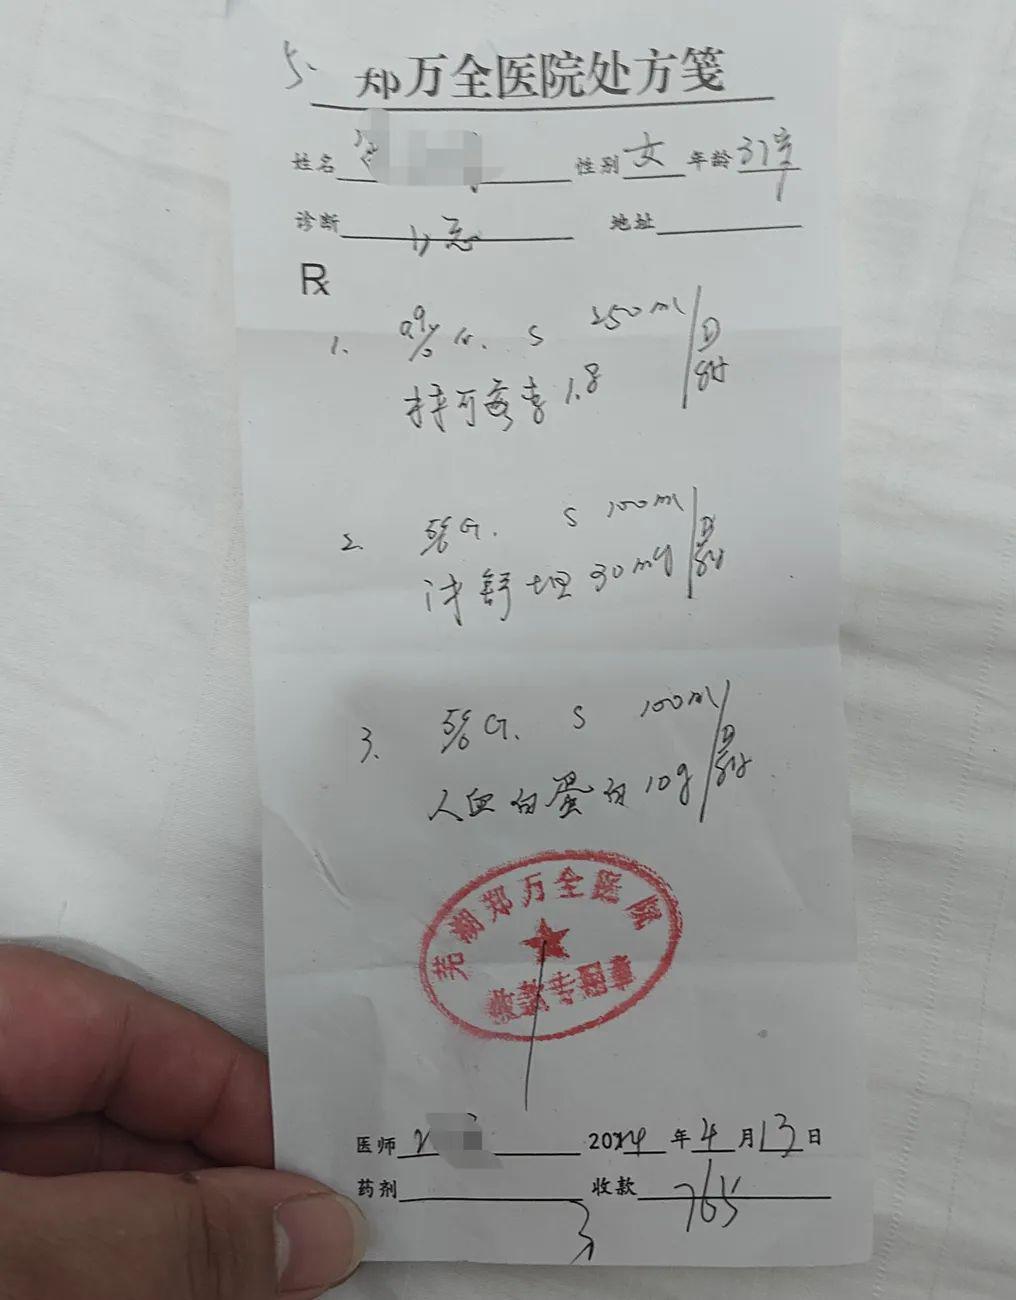 5.
郑万全医院处方笺
姓名 性别 女 年龄 31岁
诊断 地址
R
1. 0.9% N. S 250ml
1.8
2. 5% G. S 100ml
沐舒坦 30mg
3. 5% G. S 100ml
人血白蛋白 10g
芜湖郑万全医院
收款专用章
医师 2024 年 4 月 13 日
药剂 收款 765